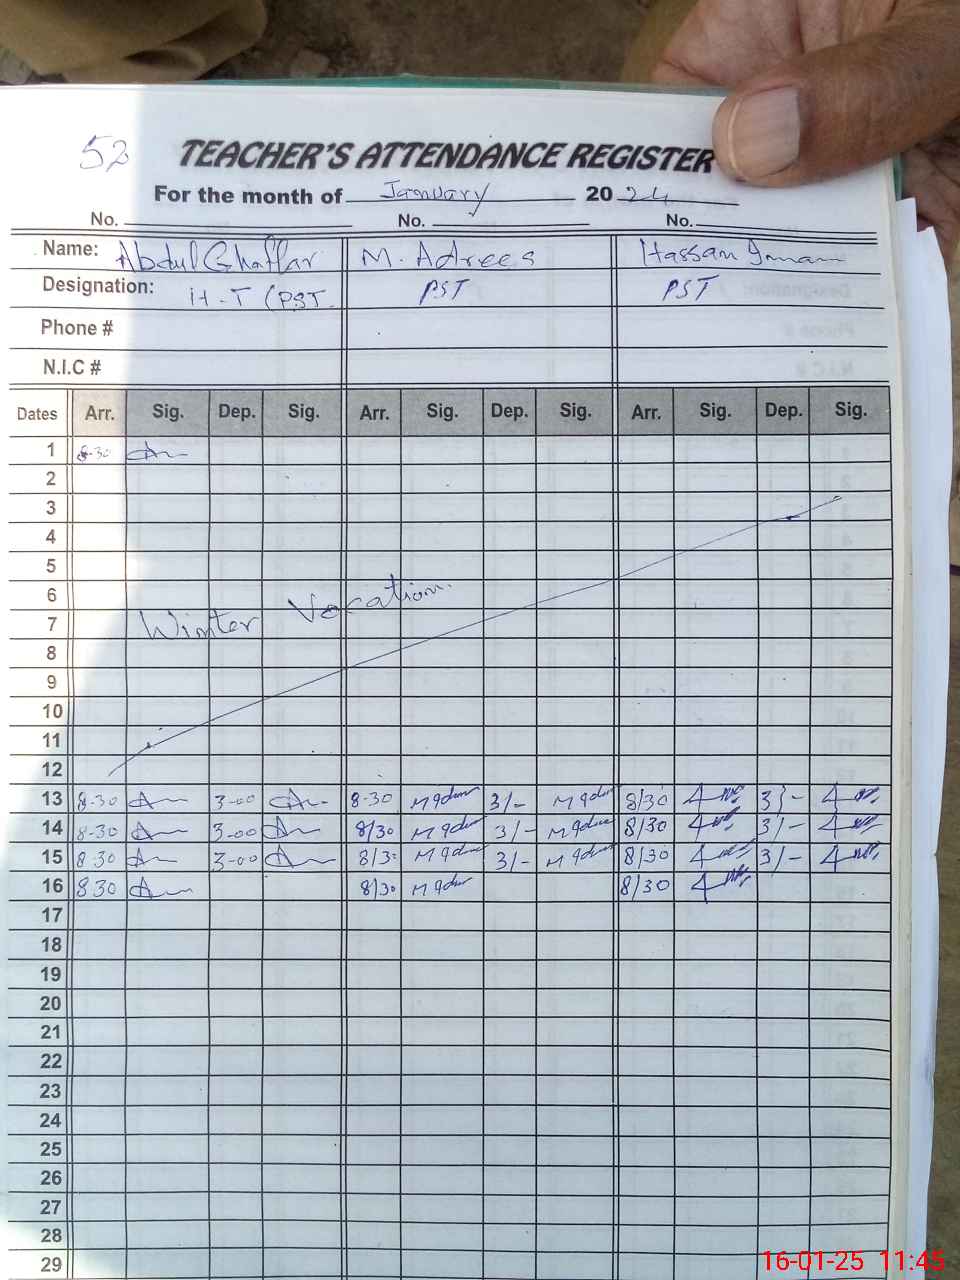 52
TEACHER'S ATTENDANCE REGISTER
For the month of January 2024
No. No. No.
Name: Abdul Ghaffar M. Adrees Hassan Imam
Designation: H-T (PST PST PST
Phone #
N.I.C #
Dates Arr. Sig. Dep. Sig. Arr. Sig. Dep. Sig. Arr. Sig. Dep. Sig.
1 8-30
2
3
4
5
6
7 Winter Vacation
8
9
10
11
12
13 8-30 3-00 8-30 3/- 8/30 3/-
14 8-30 3-00 8/30 3/- 8/30 3/-
15 8-30 3-00 8/30 3/- 8/30 3/-
16 8 30 8/30 8/30
17
18
19
20
21
22
23
24
25
26
27
28
29
16-01-25 11:45